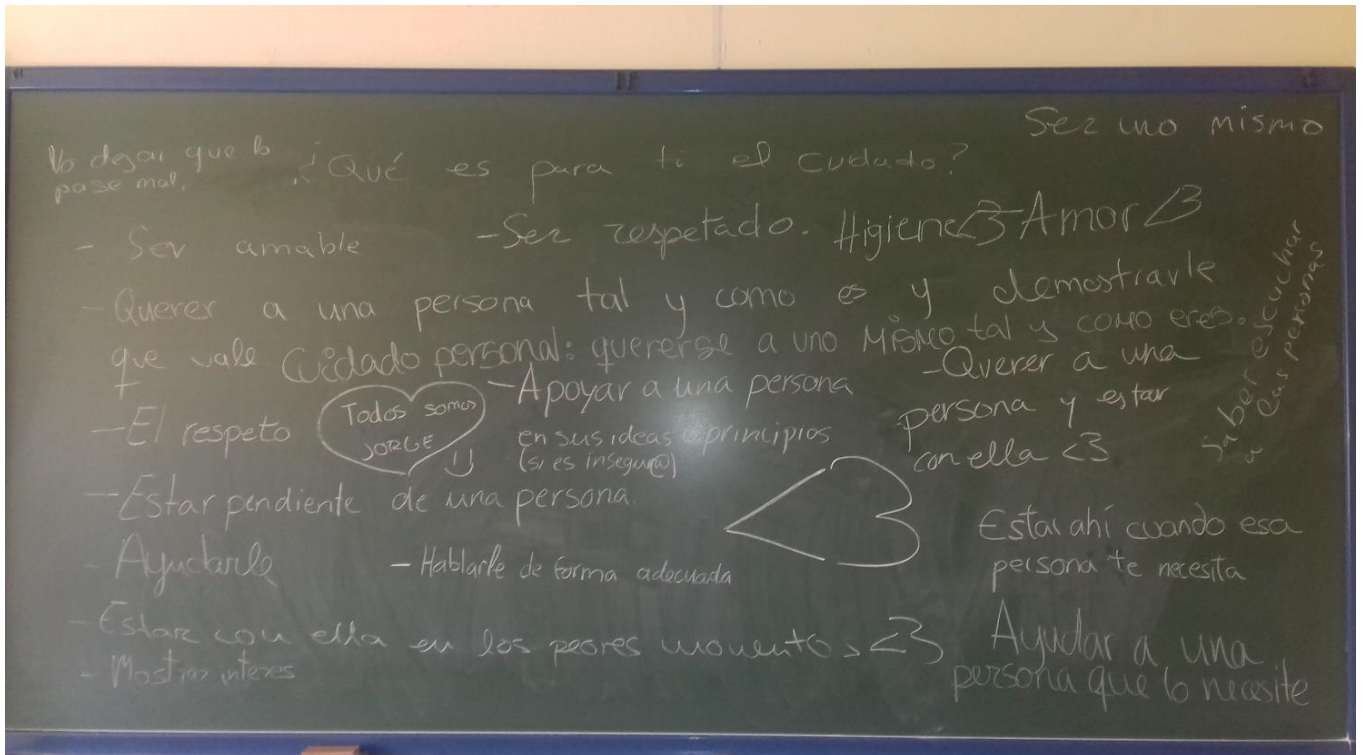 Ser uno mismo
No dejar que lo
pase mal.
¿Qué es para ti el cuidado?
- Ser amable
- Ser respetado.
Higiene <3
- Amor <3
- Querer a una persona tal y como es y demostrarle
que vale
Cuidado personal: quererse a uno mismo tal y como eres.
Saber escuchar
a las personas
- El respeto
Todos somos
JORGE
- Apoyar a una persona
en sus ideas o principios
(si es insegur@)
- Querer a una
persona y estar
con ella <3
- Estar pendiente de una persona.
<3
- Ayudarle
- Hablarle de forma adecuada
Estar ahí cuando esa
persona te necesita
- Estar con ella en los peores momentos <3
- Mostrar interes
Ayudar a una
persona que lo necesite